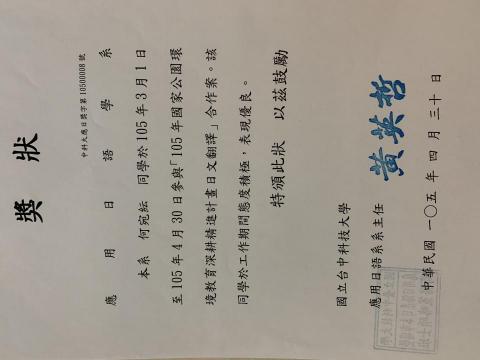 獎狀
中科大應日獎字第10500008號
應用日語學系
本系 何宛紜 同學於105年3月1日
至105年4月30日參與「105年國家公園環
境教育深耕精進計畫日文翻譯」合作案。該
同學於工作期間態度積極,表現優良。
特頒此狀 以茲鼓勵
國立台中科技大學
應用日語系系主任
黃英哲
中華民國一〇五年四月三十日